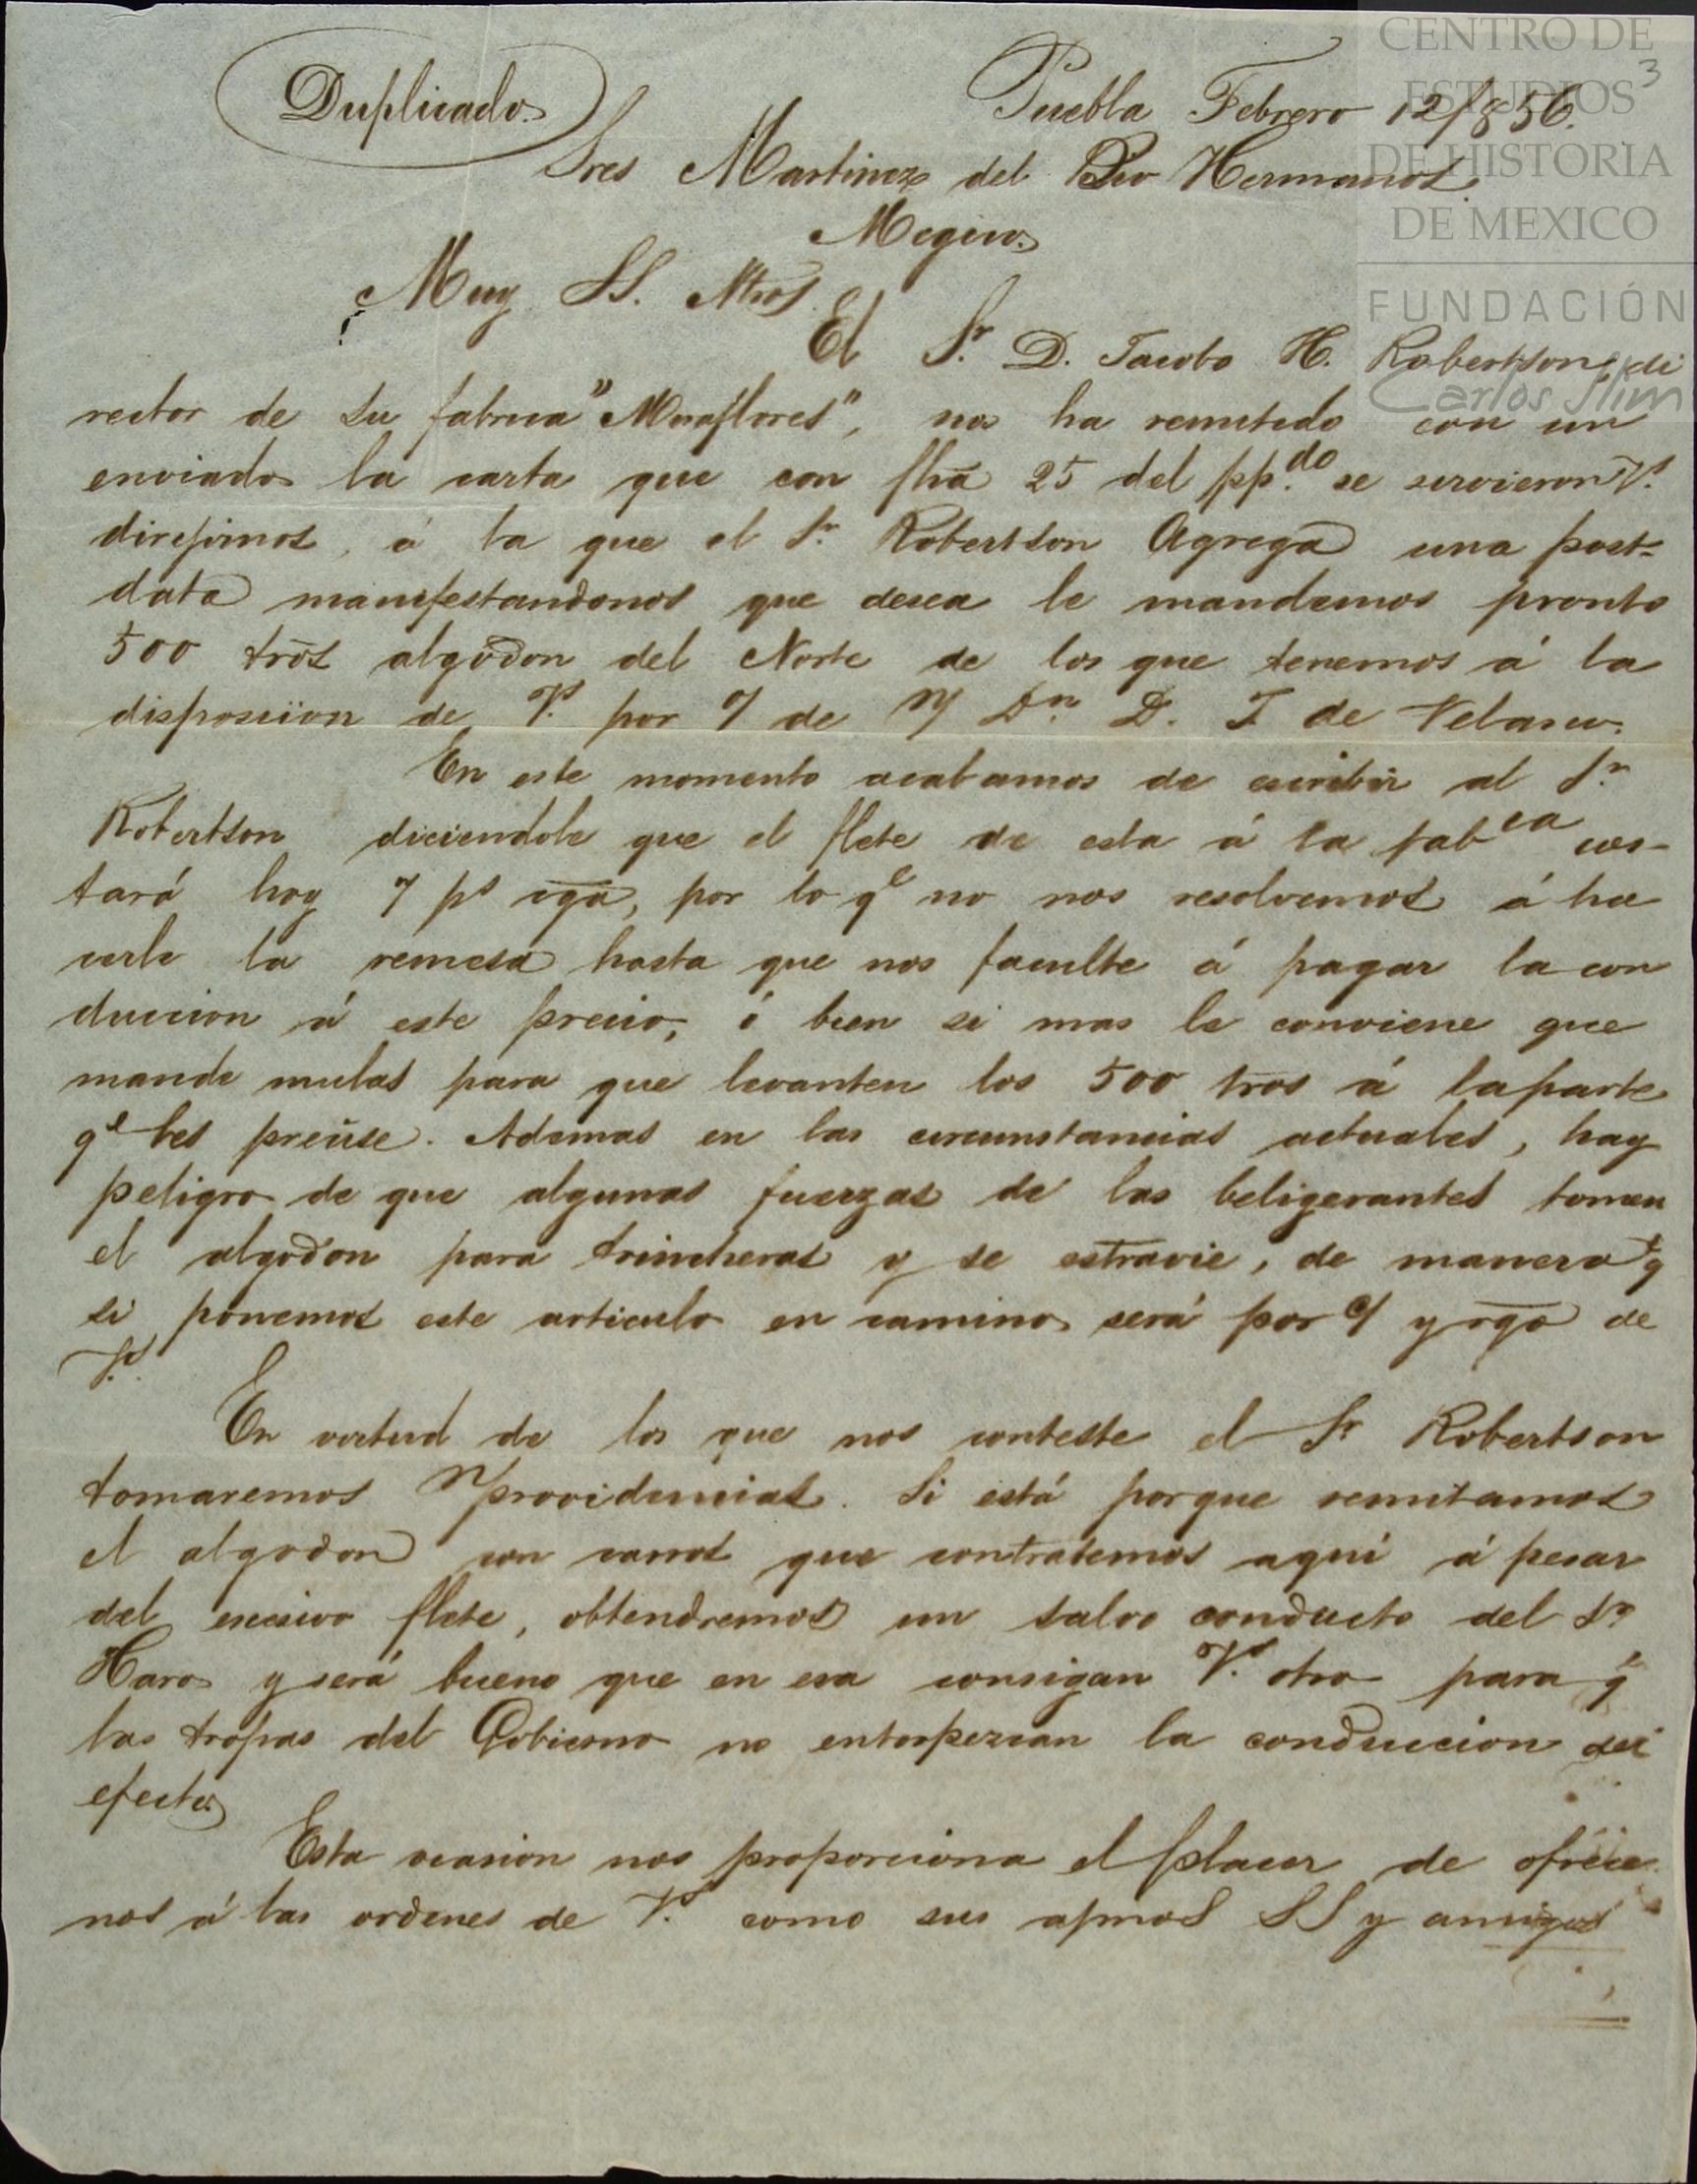 CENTRO DE
ESTUDIOS
DE HISTORIA
DE MEXICO
FUNDACIÓN
Carlos Slim
3
Duplicado.
Puebla Febrero 12/856.
Sres Martinez del Rio Hermanos.
Megico.
Muy SS. Ntros.
El Sr. D. Jacobo H. Robertson, di
rector de su fabrica "Miraflores", nos ha remitido con un
enviado la carta que con fha 25 del pp.do se sirvieron Vs.
dirijirnos, á la que el Sr. Robertson Agrega una post-
data manifestandonos que desea le mandemos pronto
500 tros algodon del Norte de los que tenemos á la
disposicion de Vs. por o/ de n/ Dn. D. J de Velasco.
En este momento acabamos de escribir al Sr.
Robertson diciendole que el flete de esta á la fabca cos-
tará hoy 7 ps cga, por lo qe no nos resolvemos á ha
cerle la remesa hasta que nos faculte á pagar la con
duccion á este precio, ó bien si mas le conviene que
mande mulas para que levanten los 500 tros á la parte
qe les precise. Ademas en las circunstancias actuales, hay
peligro de que algunas fuerzas de las beligerantes tomen
el algodon para trincheras y se estravie, de manera qe
si ponemos este articulo en camino será por c/ y rgo de
Vs.
En virtud de los que nos conteste el Sr Robertson
tomaremos n/ providencias. Si está porque remitamos
el algodon con carros que contratemos aquí á pesar
del excesivo flete, obtendremos un salvo conducto del Sr
Haro y será bueno que en esa consigan Vs. otro para qe
las tropas del Gobierno no entorpezcan la conduccion del
efecto.
Esta ocasion nos proporciona el placer de ofrece
nos á las ordenes de Vs. como sus afmos SS y amigos